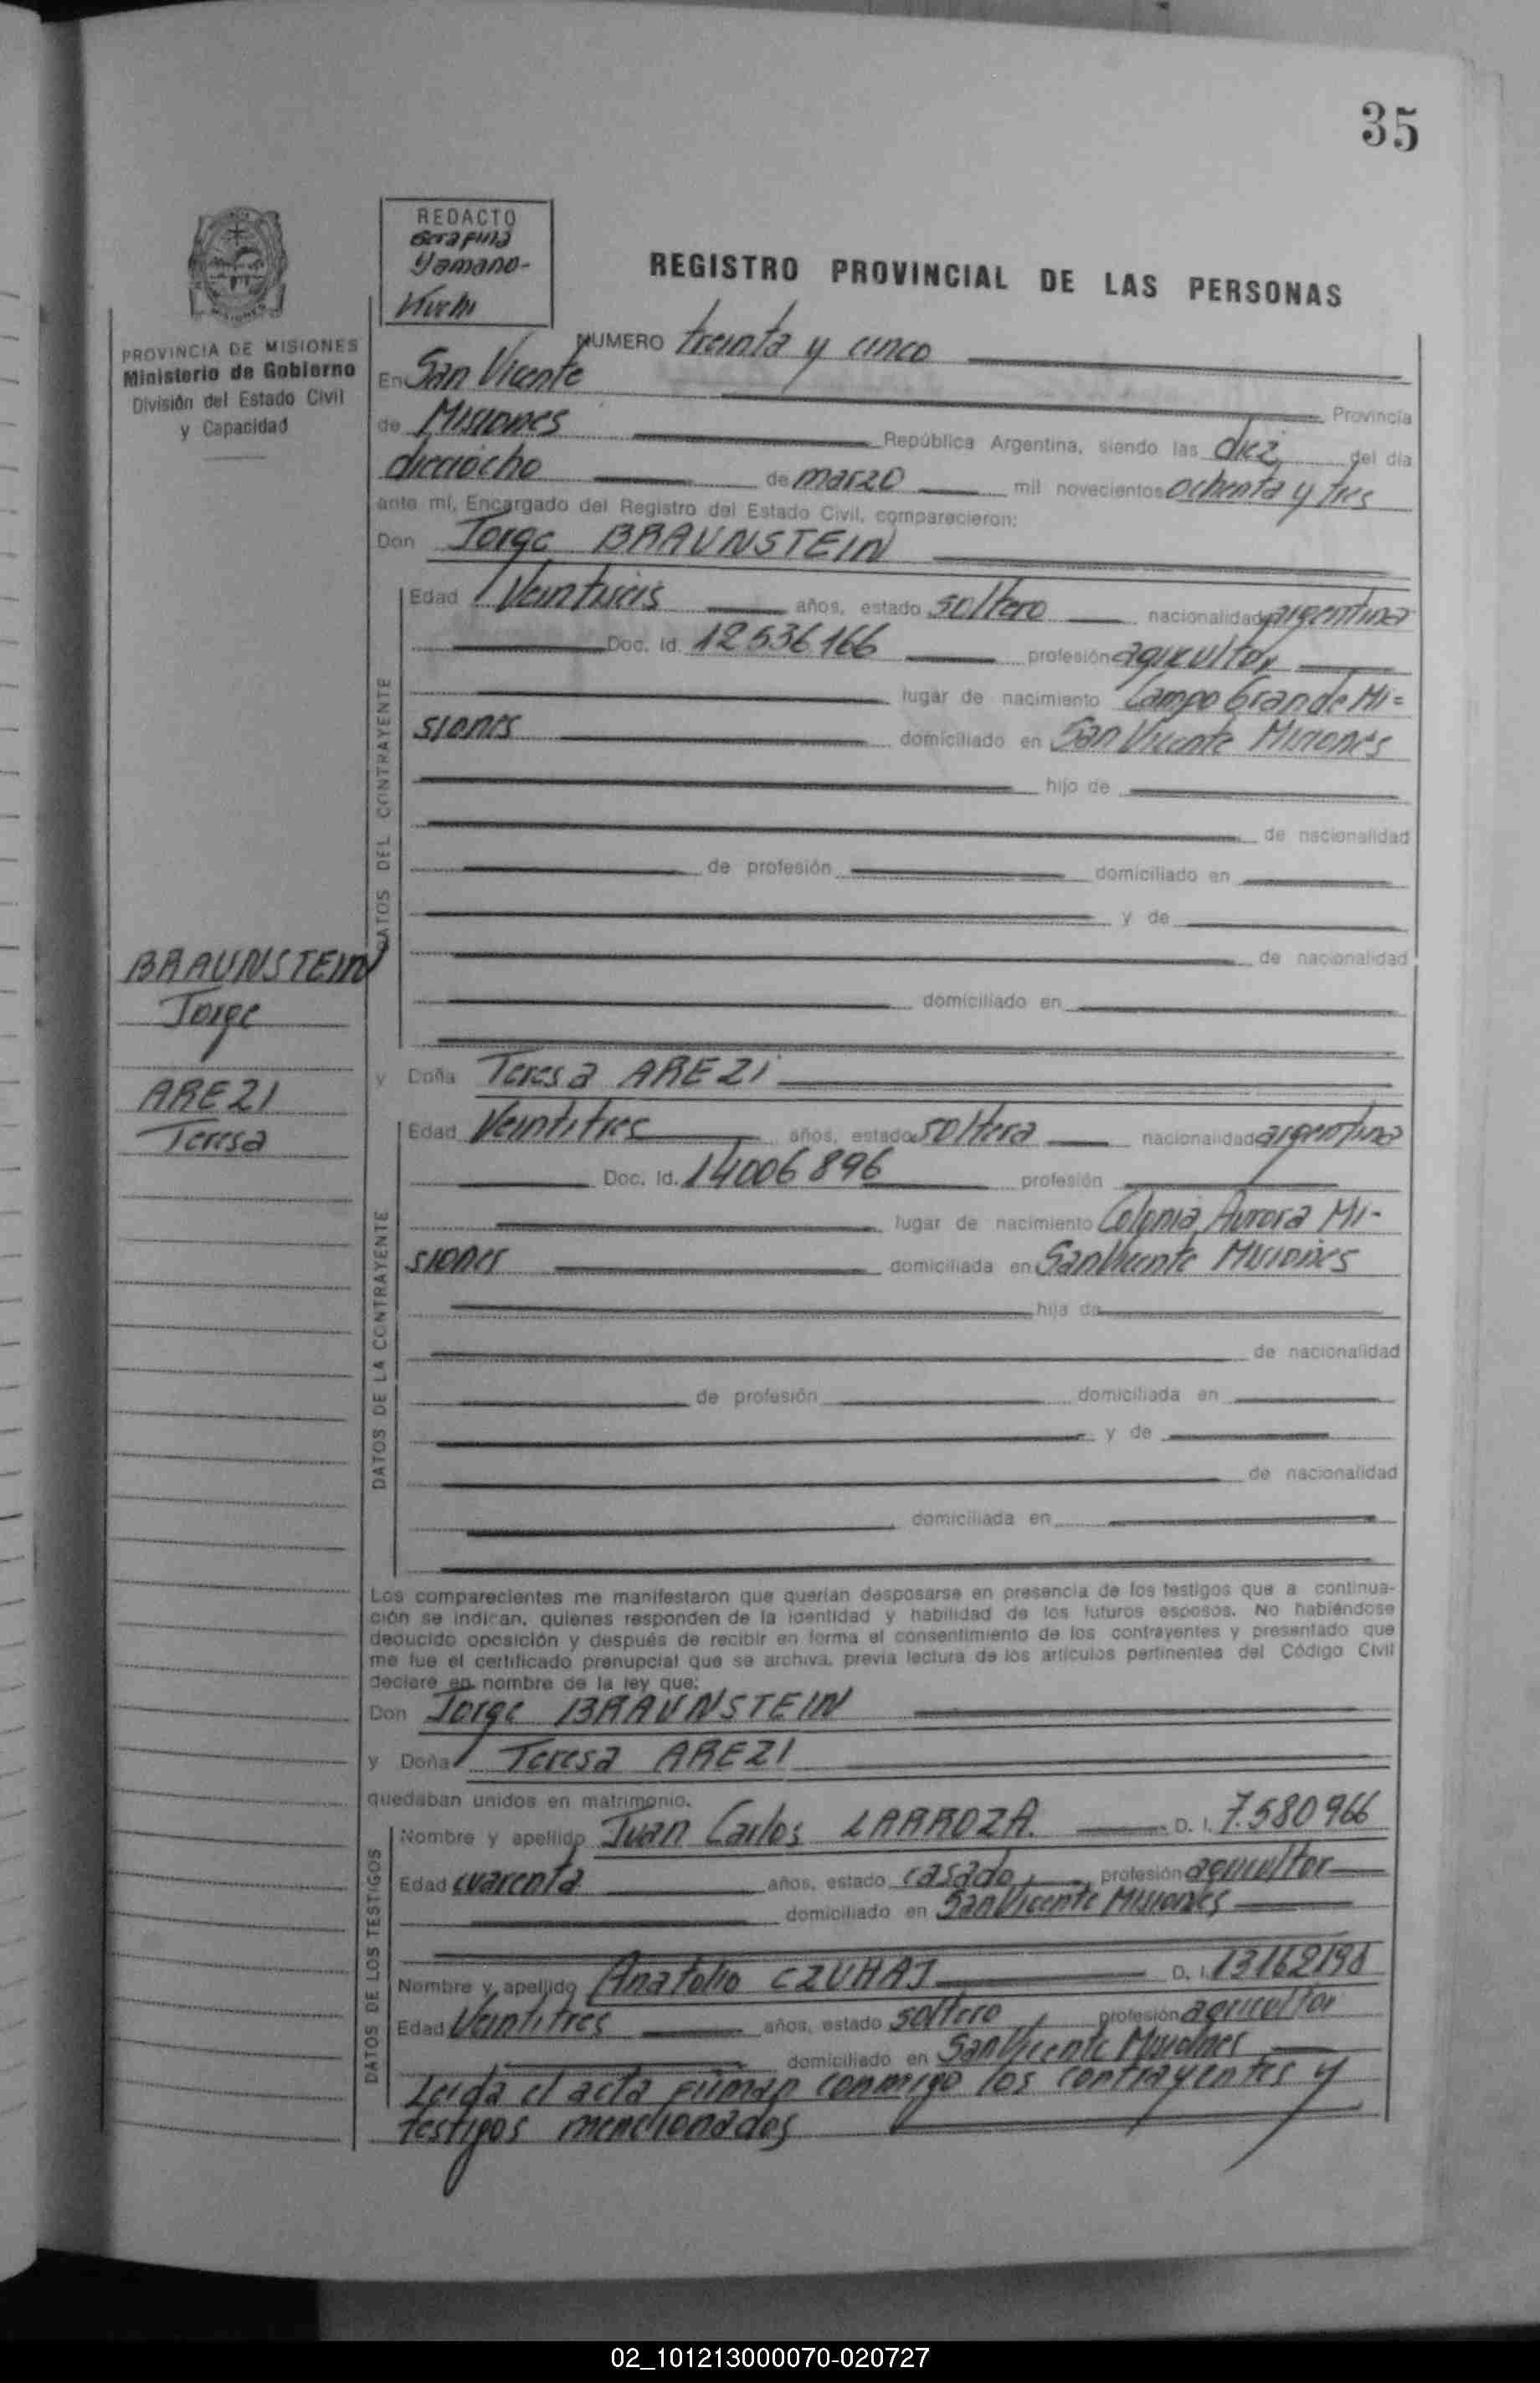 35
REDACTO
Serafina
Yamano-
Kuchi
REGISTRO PROVINCIAL DE LAS PERSONAS
PROVINCIA DE MISIONES
Ministerio de Gobierno
División del Estado Civil
y Capacidad
NUMERO treinta y cinco
En San Vicente Provincia
de Misiones República Argentina, siendo las diez del día
dieciocho de marzo mil novecientos ochenta y tres
ante mí, Encargado del Registro del Estado Civil, comparecieron:
Don Jorge BRAUNSTEIN
Edad Veintiseis años, estado soltero nacionalidad argentina
Doc. Id. 12536166 profesión agricultor
lugar de nacimiento Campo Grande Mi=
siones domiciliado en San Vicente Misiones
hijo de
de nacionalidad
de profesión domiciliado en
y de
de nacionalidad
domiciliado en
DATOS DEL CONTRAYENTE
BRAUNSTEIN
Jorge
AREZI
Teresa
y Doña Teresa AREZI
Edad Veintitres años, estado soltera nacionalidad argentina
Doc. Id. 14006896 profesión
lugar de nacimiento Colonia Aurora Mi-
siones domiciliada en San Vicente Misiones
hija de
de nacionalidad
de profesión domiciliada en
y de
de nacionalidad
domiciliada en
DATOS DE LA CONTRAYENTE
Los comparecientes me manifestaron que querían desposarse en presencia de los testigos que a continua-
ción se indican, quienes responden de la identidad y habilidad de los futuros esposos. No habiéndose
deducido oposición y después de recibir en forma el consentimiento de los contrayentes y presentado que
me fue el certificado prenupcial que se archiva, previa lectura de los artículos pertinentes del Código Civil
declare en nombre de la ley que:
Don Jorge BRAUNSTEIN
y Doña Teresa AREZI
quedaban unidos en matrimonio.
Nombre y apellido Juan Carlos LARROZA. D. I. 7.580966
Edad cuarenta años, estado casado profesión agricultor
domiciliado en San Vicente Misiones
Nombre y apellido Anatolio CZUHAJ D. I. 13162198
Edad Veintitres años, estado soltero profesión agricultor
domiciliado en San Vicente Misiones
DATOS DE LOS TESTIGOS
Leida el acta firman conmigo los contrayentes y
testigos mencionados
02_101213000070-020727